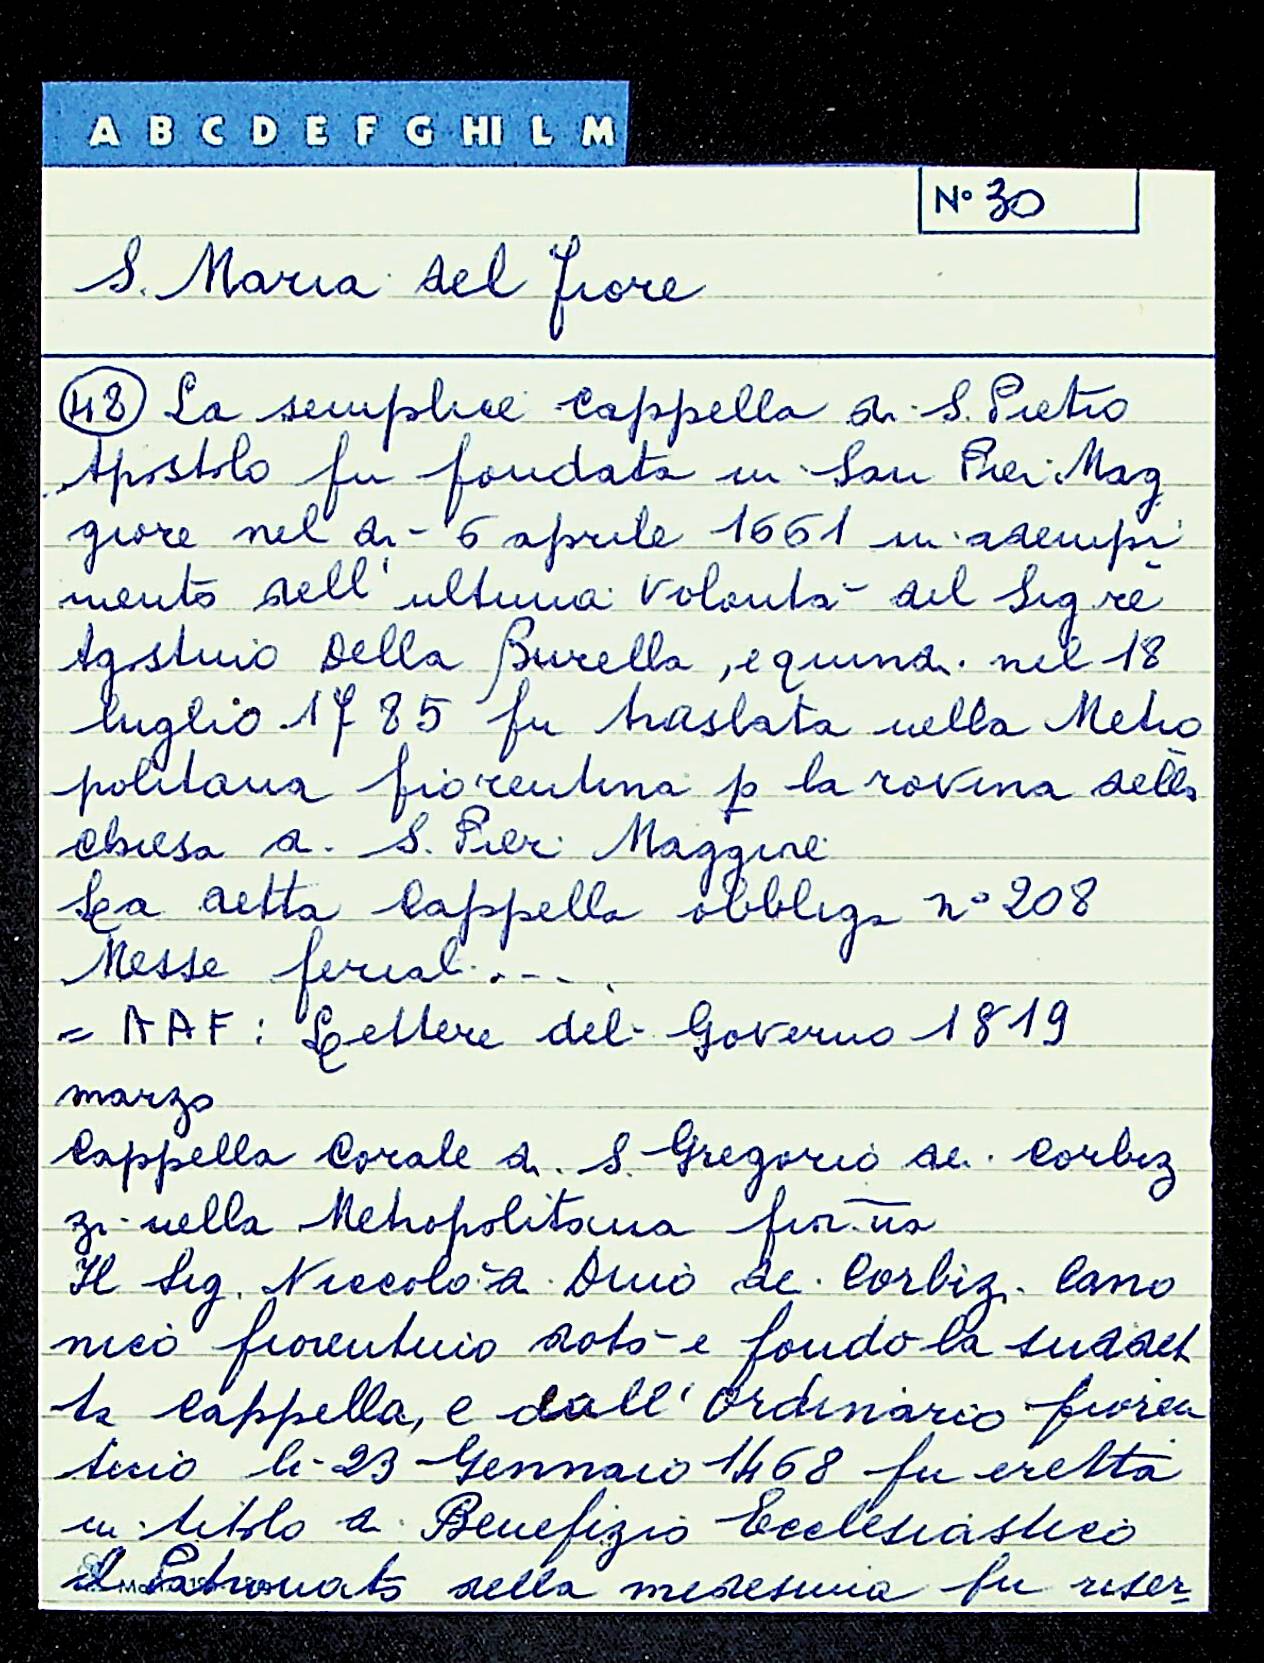 A B C D E F G HI L M
N° 30
S. Maria del fiore
48 La semplice Cappella di S. Pietro
Apostolo fu fondata in San Pier Mag
giore nel dì 6 aprile 1661 in adempi
mento dell'ultima volontà del Sig.re
Agostino Della Burella, e quindi nel 18
luglio 1785 fu traslata nella Metro
politana fiorentina p la rovina della
chiesa di S. Pier Maggiore
La detta Cappella obbliga n° 208
Messe feriali....
= AAF: Lettere del Governo 1819
marzo
Cappella Corale di S. Gregorio dei Corbiz
zi nella Metropolitana fior.na
Il Sig. Niccolò di Dino de Corbizi Cano
nico fiorentino dotò e fondò la suddet
ta Cappella, e dall'Ordinario fioren
tino li 23 Gennaio 1468 fu eretta
in titolo di Benefizio Ecclesiastico
Il Patronato della medesima fu riser_